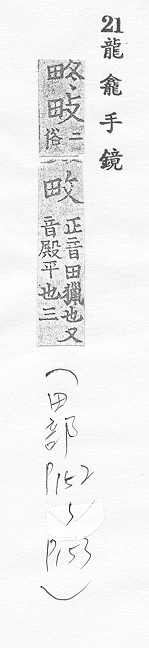 21 龍龕手鏡
二俗
畋 正音田獵也又音殿平也三
(田部 P152〜P153)